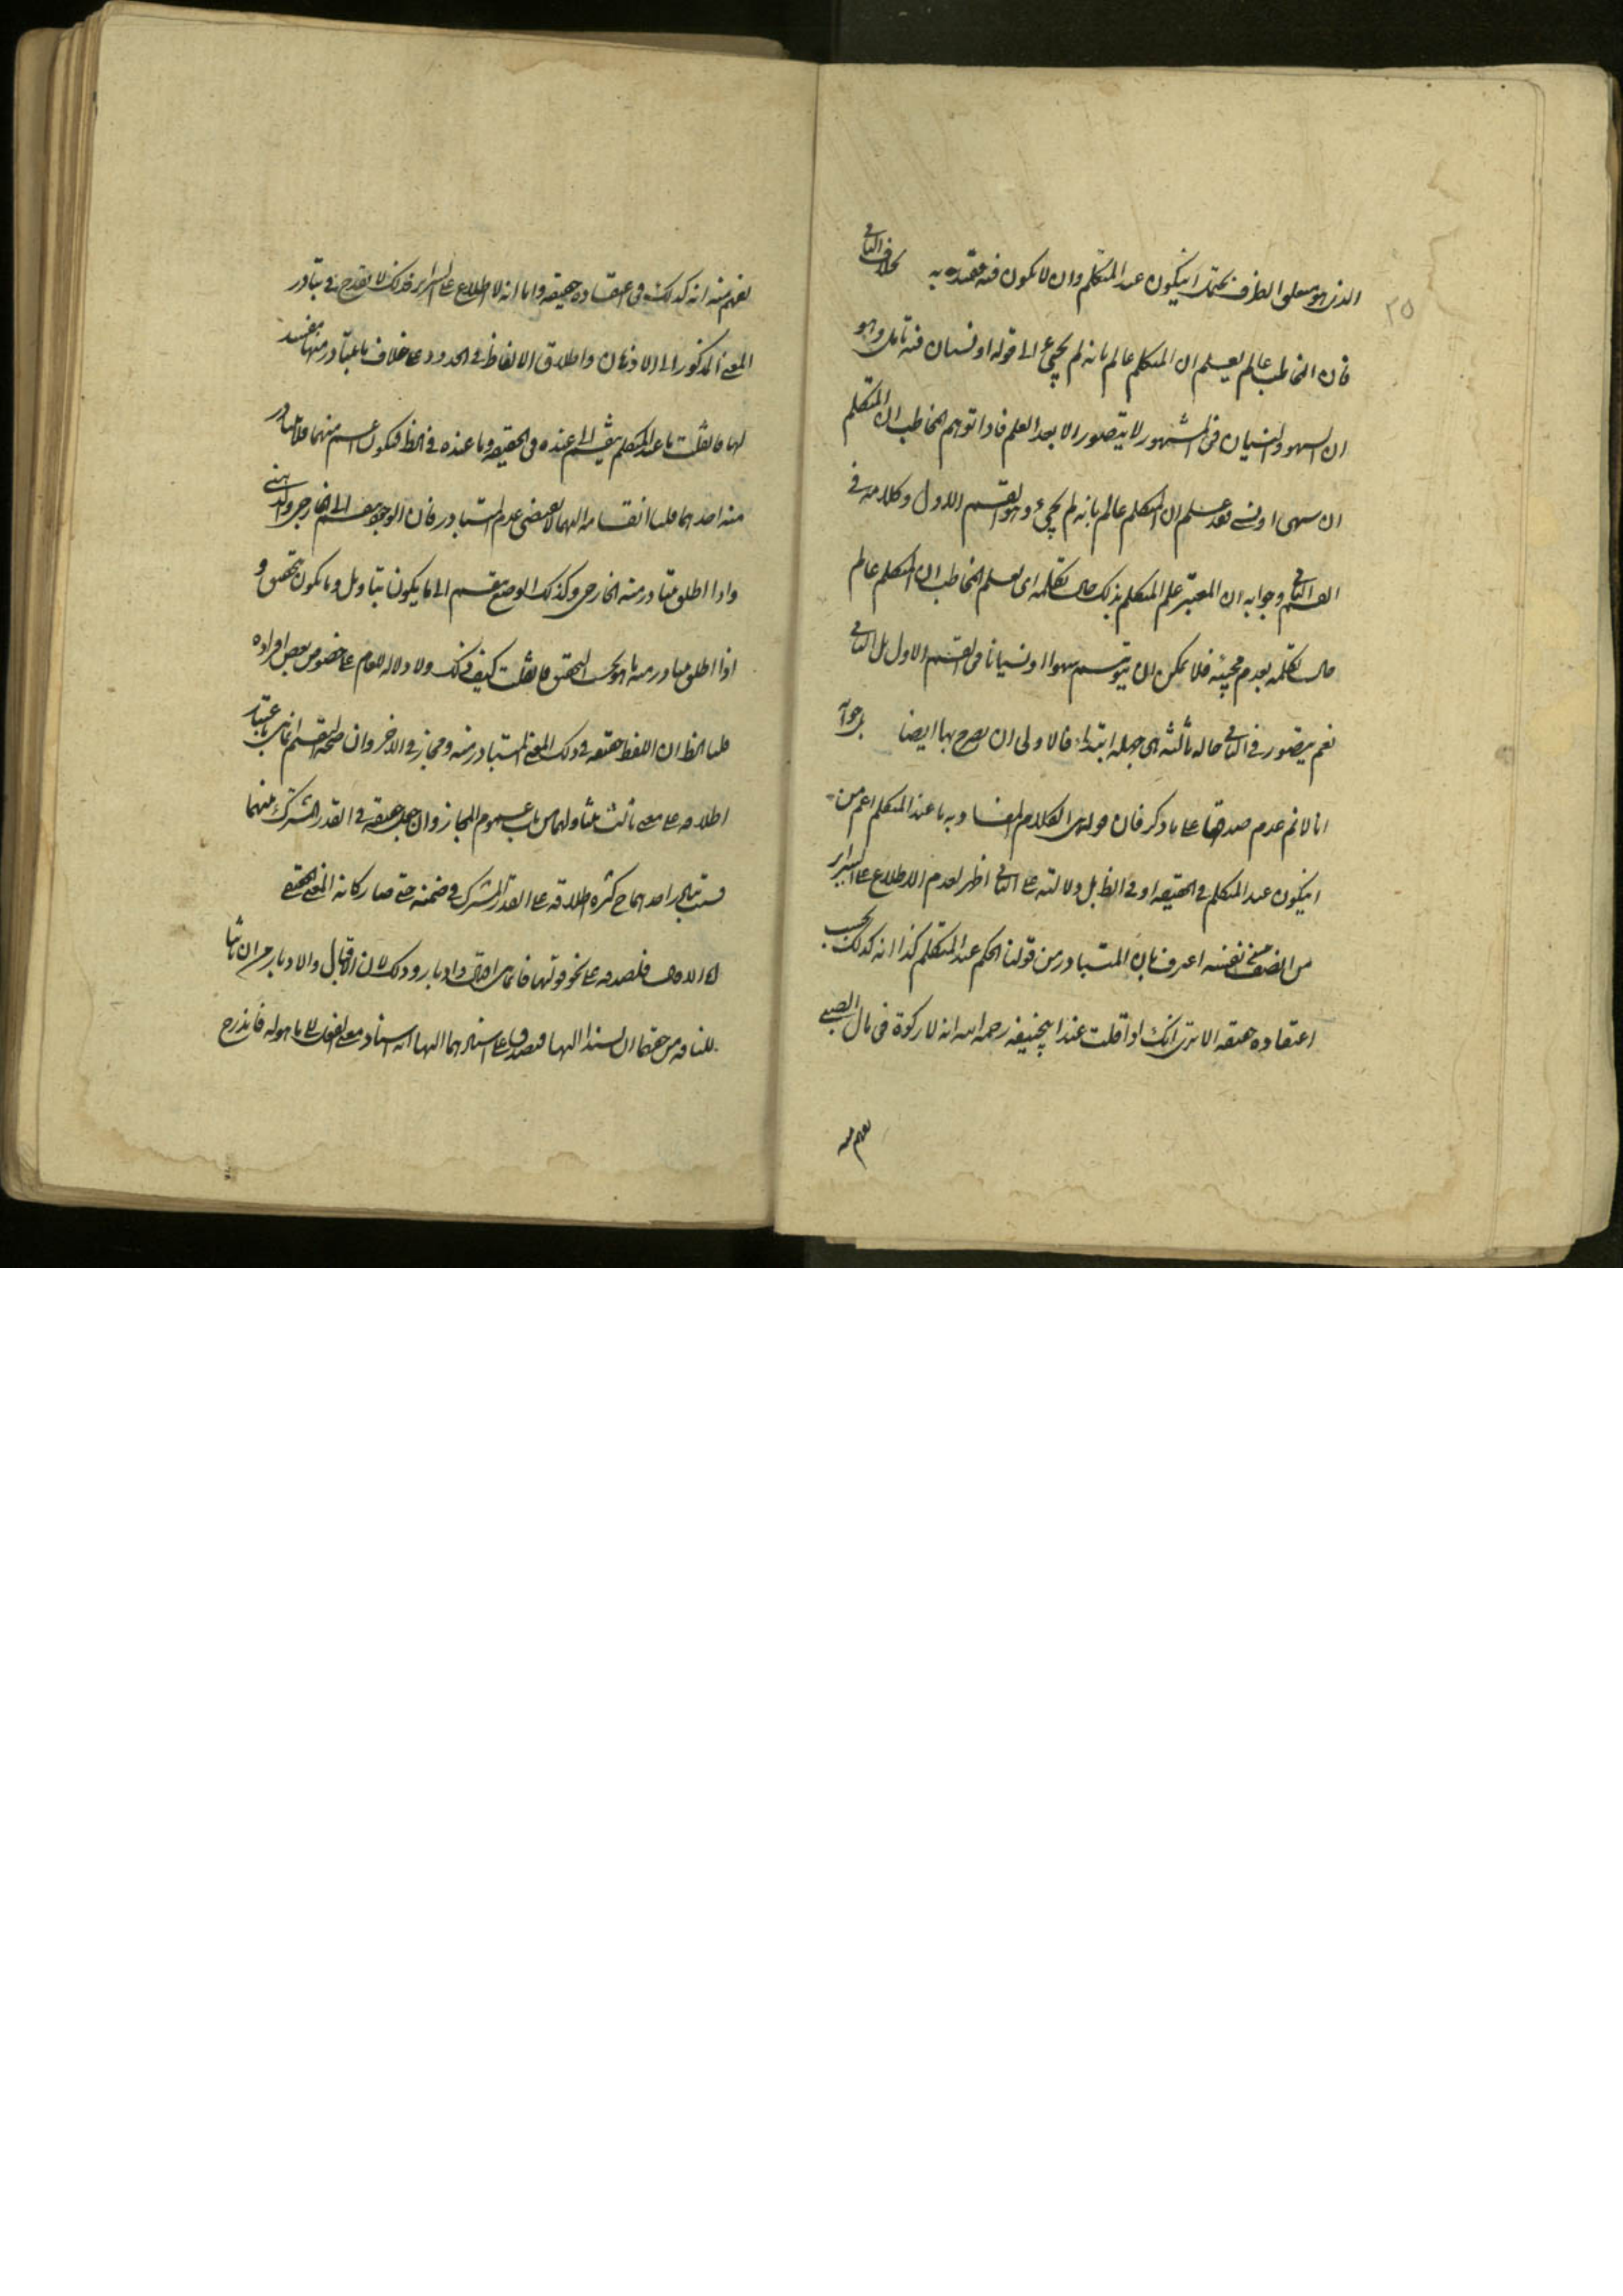 ٢٥
الذى هو متعلق الظرف يحتمل ان يكون عند المتكلم وان لا يكون فيه مقيد به بخلاف الثانى
فان المخاطب عالم يعلم ان المتكلم عالم بانه لم يجئ الى قوله او نسيان فيه تامل وهو
ان السهو والنسيان فى المشهور لا يتصور الا بعد العلم فاذا توهم المخاطب ان المتكلم
ان سهى او نسى فقد علم ان المتكلم عالم بانه لم يجئ وهو القسم الاول وكلامه فى
القسم الثانى وجوابه ان المعتبر علم المتكلم بذلك حال تكلمه اى يعلم المخاطب ان المتكلم عالم
حال تكلمه بعدم مجيئه فلا يمكن ان يتوهم سهوا او نسيانا فى القسم الاول بل الثانى
نعم يتصور فى الثانى حاله ثالثه اى جهله ابتداء فالاولى ان يصرح بها ايضا
انا لا نم عدم صدقها على ما ذكر فان قولهم الكلام المفاد به ما عند المتكلم اعم من
ان يكون عند المتكلم فى الحقيقه او فى الظ بل دلالته على الثانى اظهر لعدم الاطلاع على السراير
من انصف من نفسه اعترف بان المتبادر من قولنا الحكم عند المتكلم كذا انه كذلك بحسب
اعتقاده حقيقه الا ترى انك اذا قلت عند ابيحنيفه رحمه الله انه لا زكوة فى مال الصبى
يفهم منه
يفهم منه انه كذلك فى اعتقاده حقيقه واما انه لا اطلاع على السراير فذلك لا يقدح فى تبادر
المعنى المذكور الى الاذهان واطلاق الالفاظ فى الحدود على خلاف ما يتبادر منها مفسد
لها فان قلت ما عند المتكلم ينقسم الى ما عنده فى الحقيقه وما عنده فى الظ فيكون اعم منهما فلا يتبادر
منه احدهما قلنا انقسامه اليهما لا يقتضى عدم التبادر فان الوجود ينقسم الى الخارجى والذهنى
واذا اطلق يتبادر منه الخارجى وكذلك الوضع ينقسم الى ما يكون بتاويل وما يكون بتحقيق و
اذا اطلق يتبادر منه ما هو بحسب التحقيق فان قلت كيف ذلك ولا دلاله للعام على خصوص بعض افراده
قلنا الظ ان اللفظ حقيقه فى ذلك المعنى المتبادر منه ومجاز فى الاخر وان صحة التقسيم انما هى باعتبار
اطلاقه على معنى ثالث يتناولهما من باب عموم المجاز وان جعل حقيقه فى القدر المشترك بينهما
فسبب تبادر احدهما ح كثره اطلاقه على القدر المشترك فى ضمنه حتى صار كانه المعنى الحقيقى
فلصدقه على نحو قولها فانما هى اقبال وادبار وذلك لان الاقبال والادبار من شان
للناقه من حقهما ان يسندا اليها فيصدق على اسنادهما اليها انه اسناد معنى الفعل الى ما هو له فاندرج